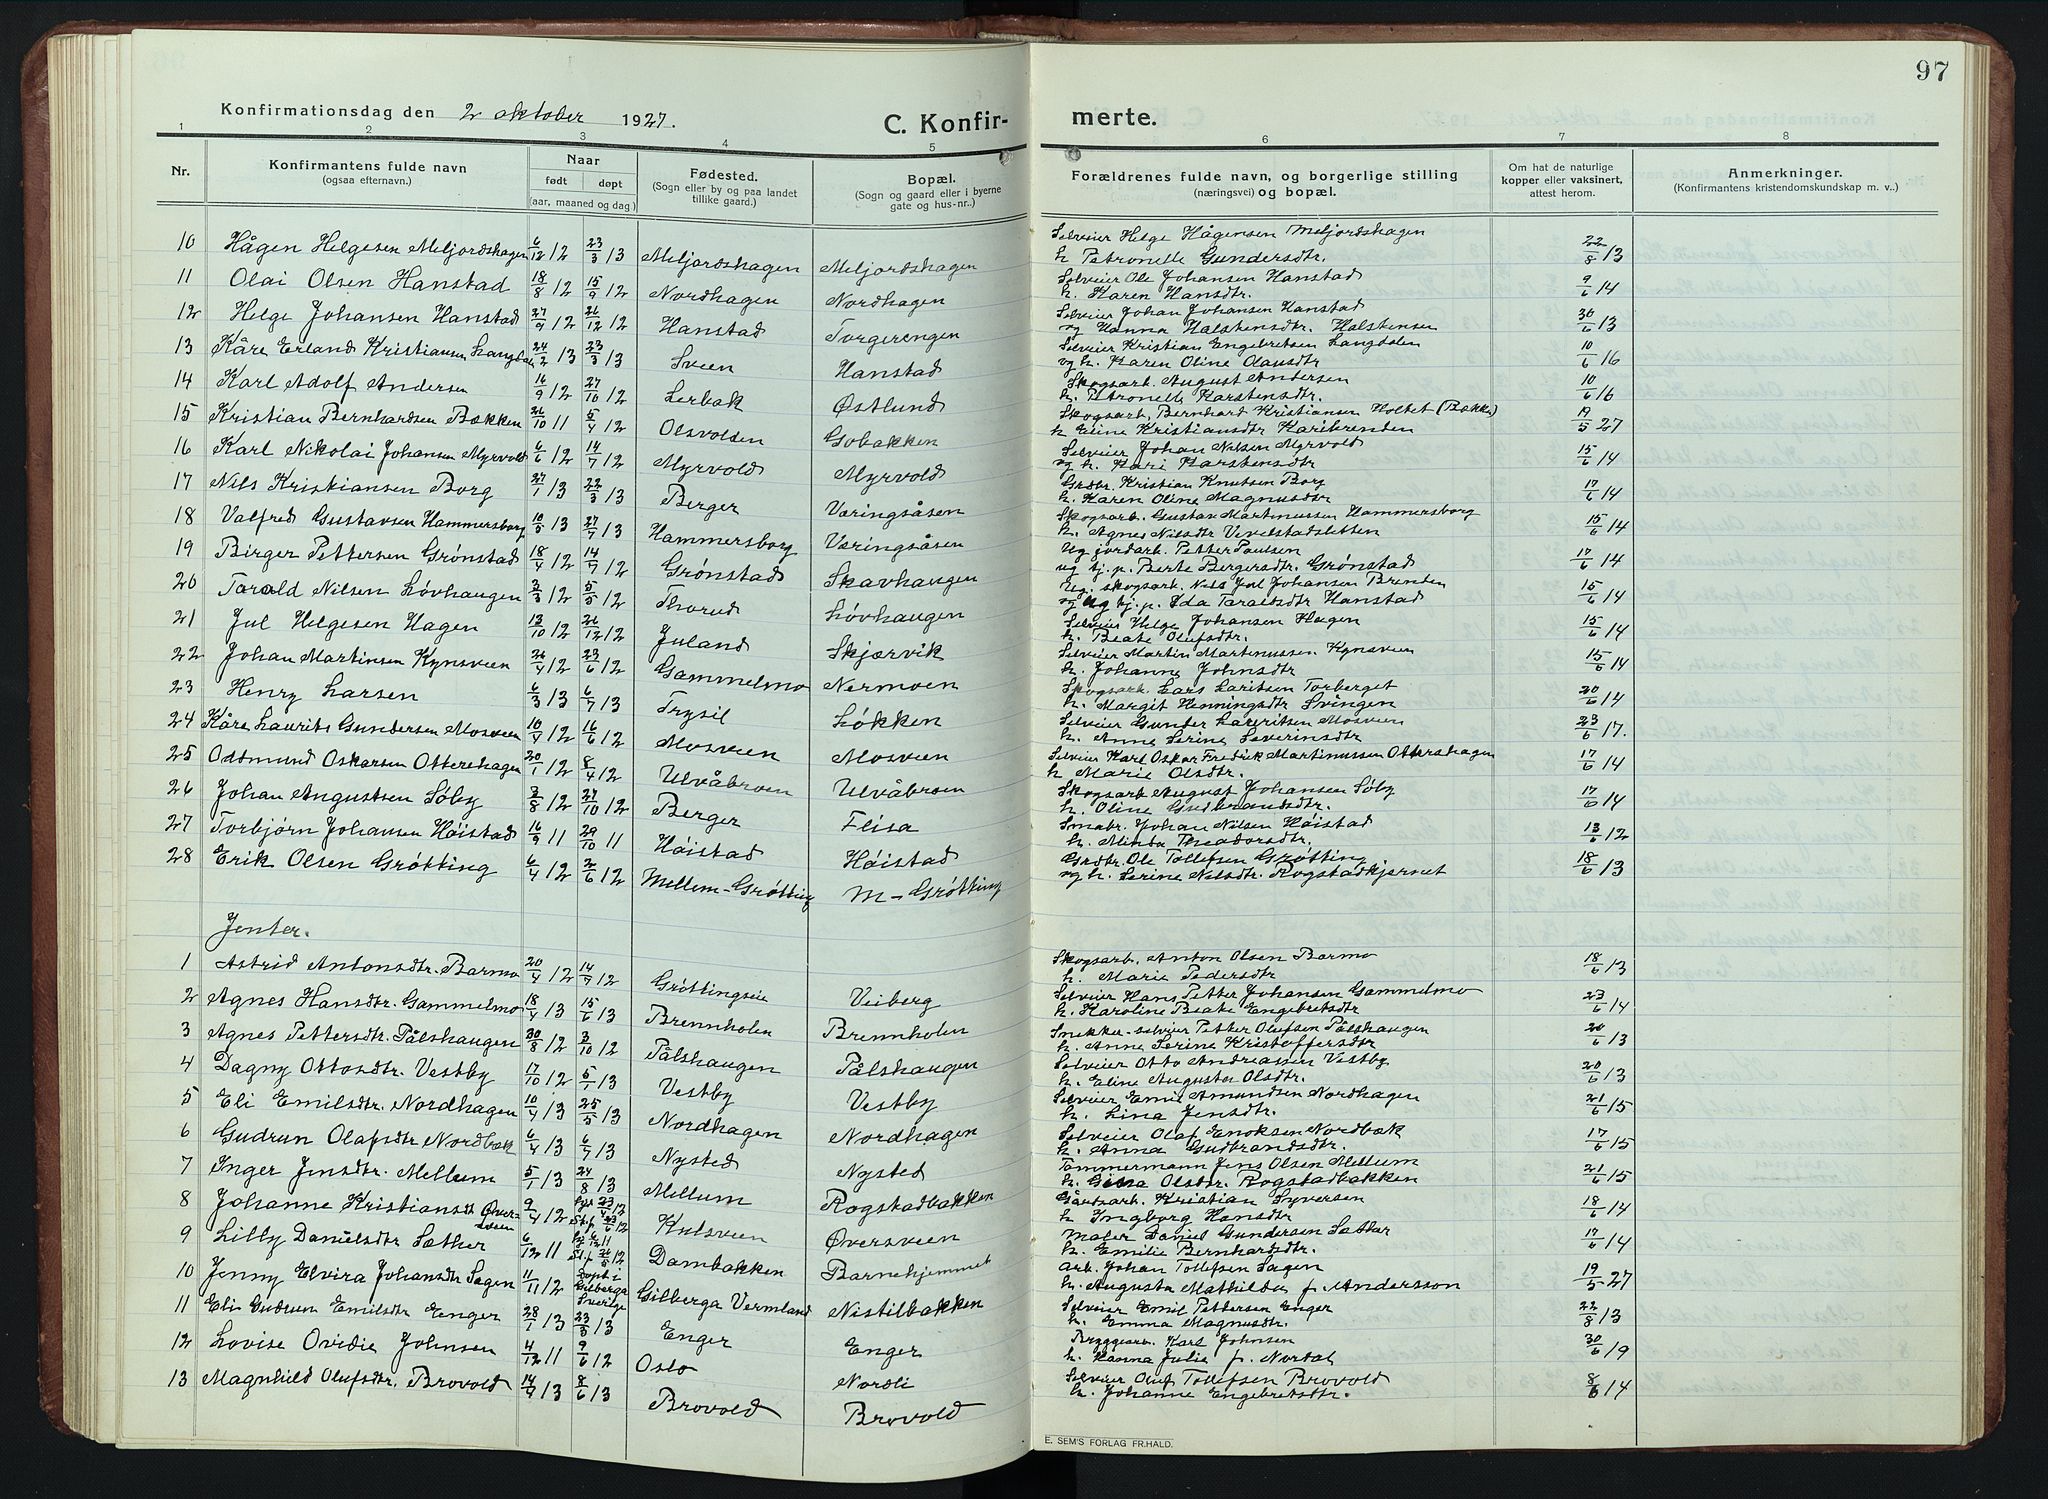 97
Konfirmationsdag den 2 oktober 1927.
C. Konfir-
merte.
1 2 3 4 5 6 7 8
Nr. Konfirmantens fulde navn (ogsaa efternavn.) Naar født døpt (aar, maaned og dag) Fødested. (Sogn eller by og paa landet tillike gaard.) Bopæl. (Sogn og gaard eller i byerne gate og hus-nr.) Forældrenes fulde navn, og borgerlige stilling (næringsvei) og bopæl. Om hat de naturlige kopper eller vaksinert, attest herom. Anmerkninger. (Konfirmantens kristendomskundskap m. v.)
10 Hågen Helgesen Meljordshagen 6/12 12 23/3 13 Meljordshagen Meljordshagen Selveier Helge Hågensen Meljordshagen 22/8 13
h. Petronelle Gundersdtr.
11 Olai Olsen Hanstad 18/8 12 15/9 12 Nordhagen Nordhagen Selveier Ole Johansen Hanstad 9/6 14
h. Karen Hansdtr.
12 Helge Johansen Hanstad 27/9 12 26/12 12 Hanstad Torgerengen Selveier Johan Johansen Hanstad 30/6 13
og Hanna Halstensdtr. Halstensen
13 Kåre Erland Kristiansen Langdalen 24/2 13 23/3 13 Sveen Hanstad Selveier Kristian Engebretsen Langdalen 10/6 16
og h. Karen Oline Olausdtr
14 Karl Adolf Andersen 16/9 12 27/10 12 Lerbak Østlund Skogsarb. August Andersen 10/6 16
h. Petronelle Karstensdtr.
15 Kristian Bernhardsen Bækken 26/10 11 5/4 12 Olsvolden Gobakken Skogsarb. Bernhard Kristiansen Holtet (Bække) A/5 27
h Eline Kristiansdtr Karibrenden
16 Karl Nikolai Johansen Myrvold 6/6 12 14/7 12 Myrvold Myrvold Selveier Johan Nilsen Myrvold 15/6 14
og h. Kari Karstensdtr
17 Nils Kristiansen Borg 27/1 13 22/3 13 Berger Væringsåsen Grdbr. Kristian Knutsen Borg 17/6 14
h. Karen Oline Magnusdtr
18 Valfred Gustavsen Hammersborg 10/5 13 27/7 13 Hammersborg Væringsåsen Skogsarb. Gustav Martinussen Hammersborg 15/6 14
h. Agnes Nilsdtr Vevelstadsletten
19 Birger Pettersen Grønstad 18/4 12 14/7 12 Grønstad Skavhaugen Ug jordarb. Petter Paulsen 17/6 14
ug tj. p. Berte Bergersdtr. Grønstad
20 Torald Nilsen Løvhaugen 2/3 12 5/5 12 Thorud Løvhaugen Ug. skogsarb. Nils Jul Johansen Brenden 15/6 14
og ug tj. p. Ida Taraldsdtr Hanstad
21 Jul Helgesen Hagen 13/10 12 26/12 12 Juland Skjærvik Selveier Helge Johansen Hagen 15/6 14
h. Beate Olufsdtr.
22 Johan Martinsen Kynsveen 26/4 12 23/6 12 Gammelmo Nermoen Selveier Martin Martinussen Kynsveen 15/6 14
h. Johanne Johnsdtr
23 Henry Larsen 6/3 13 6/7 13 Trysil Løkken Skogsarb. Lars Laritsen Torberget 20/6 14
h. Margit Henningsdtr Svingen
24 Kåre Laurits Gundersen Mosveen 10/4 12 16/6 12 Mosveen Mosveen Selveier Gunder Lauritsen Mosveen 23/6 17.
h. Anne Serine Severinsdtr
25 Oddmund Oskarsen Ottershagen 20/1 12 8/4 12 Ulvåbroen Ulvåbroen Selveier Karl Oskar Fredrik Martinussen Ottershagen 17/6 14
h Marie Olsdtr.
26 Johan Augustsen Søby 2/8 12 27/10 12 Berger Flisa Skogsarb August Johansen Søby 17/6 14
h. Oline Gudbrandsdtr.
27 Torbjørn Johansen Høistad 16/9 11 29/10 11 Høistad Høistad Smabr. Johan Nilsen Høistad 13/6 12
h. Minda Theodorsdtr.
28 Erik Olsen Grøtting 6/4 12 2/6 12 Mellem-Grøtting M-Grøtting Grdbr. Ole Tollefsen Grøtting 18/6 13
og h. Serine Nilsdtr. Rogstadkjernet
Jenter.
1 Astrid Antonsdtr. Barmo 20/4 12 14/7 12 Grøttingseie Veiberg Skogsarb. Anton Olsen Barmo 18/6 13
h. Marie Pedersdtr
2 Agnes Hansdtr. Gammelmo 18/4 13 15/6 13 Brennholen Brennholen Selveier Hans Petter Johansen Gammelmo 23/6 14
h. Karoline Beate Engebretsdtr
3 Agnes Pettersdtr. Pålshaugen 30/8 12 3/10 12 Pålshaugen Pålshaugen Snekker-selveier Petter Olufsen Pålshaugen 20/6 13
h. Anne Serine Kristoffersdtr
4 Dagny Ottosdtr. Vestby 17/10 12 5/1 13 Vestby Vestby Selveier Otto Andreassen Vestby 20/6 13
h. Eline Augusta Olsdtr.
5 Eli Emilsdtr. Nordhagen 10/4 13 25/5 13 Nordhagen Nordhagen Selveier Emil Amundsen Nordhagen 21/6 15
h. Lina Jensdtr.
6 Gudrun Olafsdtr Nordbæk 6/4 13 6/7 13 Nysted Nysted Selveier Olaf Enoksen Nordbæk 17/6 15
h. Anna Gudbrandsdtr.
7 Inger Jensdtr. Mellum 5/1 13 24/8 13 Mellum Rogstadbakken Tømmermann Jens Olsen Mellum 21/6 15
h. Gina Olsdtr. Rogstadbakken
8 Johanne Kristiansdt Øversveen 9/4 12 hjd 23/4 12 St.f. 23/6 12 Kulsveen Øversveen Gårdsarb. Kristian Syversen 18/6 14
h Ingborg Hansdtr
9 Lilly Danielsdtr Sæther 6/12 11 St.f 26/5 12 Dambakken Barnehjemmet Maler Daniel Gundersen Sæther 17/6 14
h. Emilie Bernhardsdtr.
10 Jenny Elvira Johansdtr Sagen 11/11 12 Døpt i Gilberga Sverige Gilberga Vermland Nistilbakken Arb. Johan Tollefsen Sagen 19/5 27
h. Augusta Mathilda f. Andersson
11 Eli Gudrun Emilsdtr Enger 28/1 13 23/3 13 Enger Enger Selveier Emil Pettersen Enger 22/8 13
h. Emma Magnusdtr.
12 Lovise Ovidie Johnsen 4/12 11 9/6 12 Oslo Nordli Bryggearb. Karl Johnsen 30/6 19
h. Hanna Julie f. Nordal
13 Magnhild Olufsdtr. Brovold 14/4 13 8/6 13 Brovold Brovold Selveier Oluf Tollefsen Brovold 8/6 14
h. Johanne Engebretsdtr.
E. SEM'S FORLAG FR.HALD.